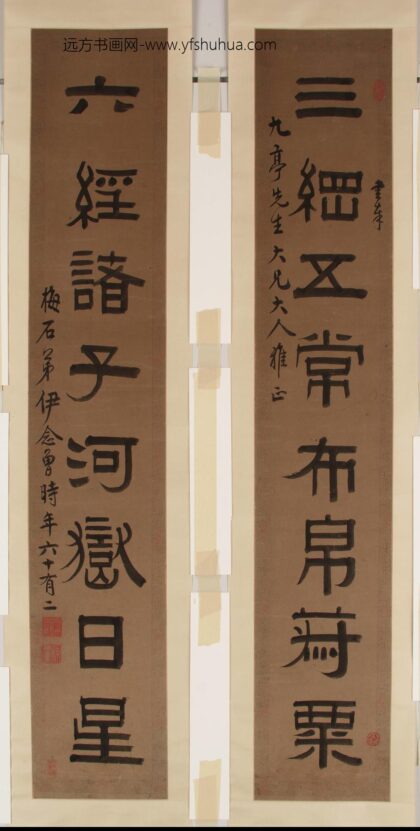 远方书画网-www.yfshuhua.com
三綱五常布帛菽粟
書奉
九亭先生大兄大人雅正
六經諸子河嶽日星
梅石弟伊念曾時年六十有二